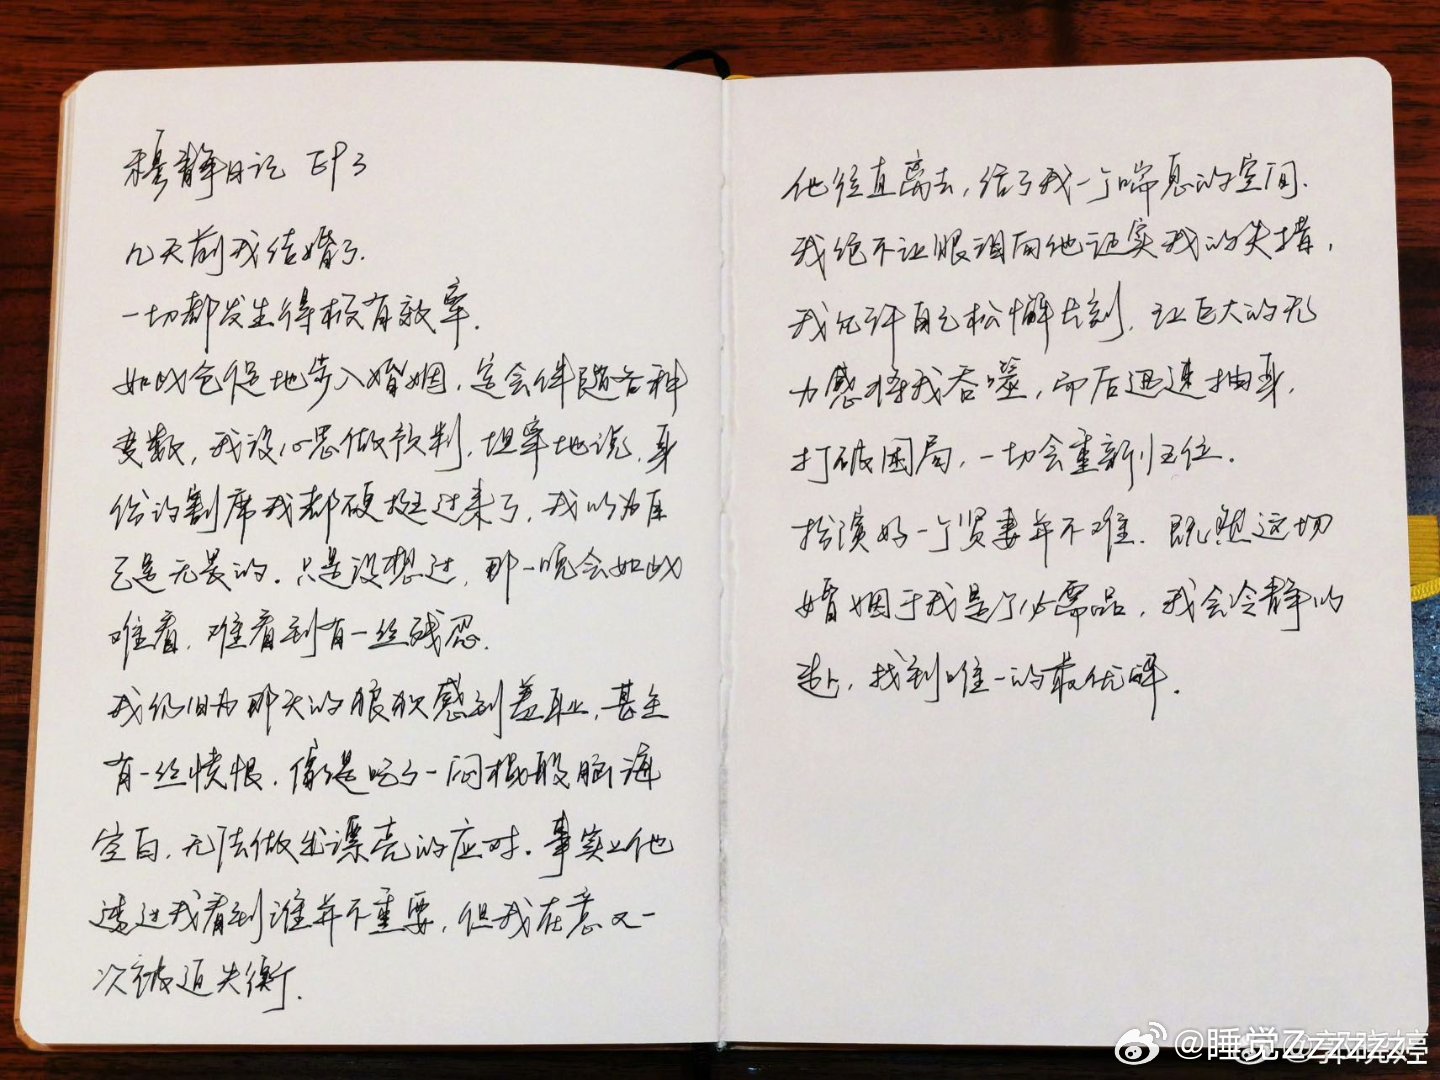 穆静日记 EP3
几天前我结婚了.
一切都发生得极有效率.
如此仓促地步入婚姻,定会伴随各种
变数,我没心思做预判,坦率地说,身
份的割席我都硬挺过来了,我以为自
己是无畏的.只是没想过,那一晚会如此
难看,难看到有一丝残忍.
我仍旧为那天的狼狈感到羞耻,甚至
有一丝愤恨.像是吃了一闷棍般脑海
空白,无法做出漂亮的应对.事实上他
透过我看到谁并不重要,但我在意又一
次被迫失衡.
他径直离去,给了我一个喘息的空间.
我绝不让眼泪向他证实我的失措,
我允许自己松懈片刻,让巨大的无
力感将我吞噬,而后迅速抽身.
打破困局,一切会重新归位.
扮演好一个贤妻并不难.既然这切
婚姻于我是个必需品,我会冷静以
赴,找到唯一的最优解.
@睡觉Zzzzzzz
郭晓婷